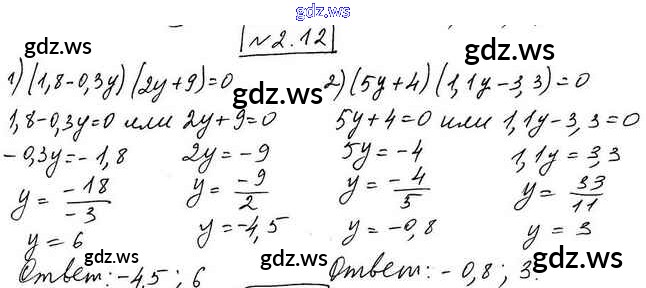 gdz.ws
№2.12
gdz.ws
gdz.ws
1) (1,8-0,3y)(2y+9)=0
1,8-0,3y=0 или 2y+9=0
-0,3y=-1,8   2y=-9
y=-18/-3   y=-9/2
y=6   y=-4,5
Ответ: -4,5; 6
2) (5y+4)(1,1y-3,3)=0
5y+4=0 или 1,1y-3,3=0
5y=-4   1,1y=3,3
y=-4/5   y=33/11
y=-0,8   y=3
Ответ: -0,8; 3.
gdz.ws
gdz.ws
gdz.ws
gdz.ws
gdz.ws
gdz.ws